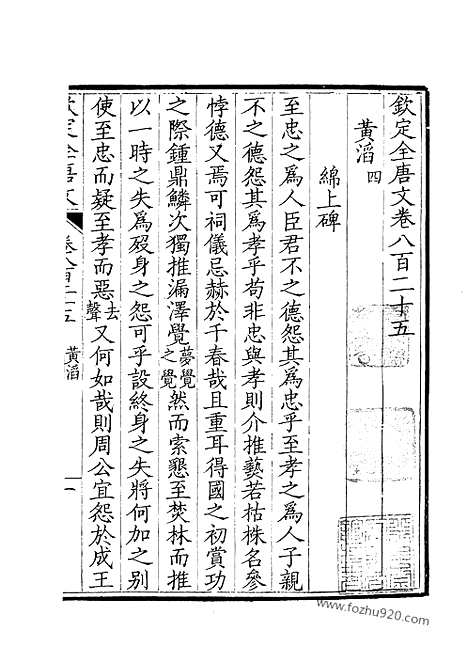 欽定全唐文卷八百二十五
黃滔四
綿上碑
至忠之為人臣君不之德怨其為忠乎至孝之為人子親
不之德怨其為孝乎苟非忠與孝則介推藝若枯株名參
悖德又焉可祠儀忌赫於千春哉且重耳得國之初賞功
之際鍾鼎鱗次獨推漏澤覺夢覺之覺然而索懇至焚林而推
以一時之失為歿身之怨可乎設終身之失將何加之别
使至忠而疑至孝而惡去聲又何如哉則周公宜怨於成王
欽定全唐文 卷八百二十五 黃滔 一
www.fozhu920.com